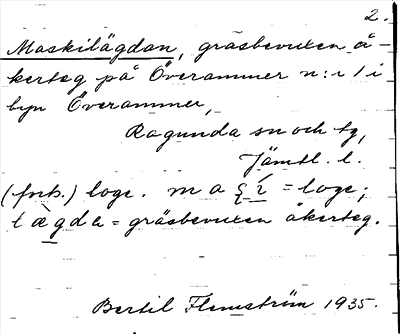 2.
Maskilägdan, gräsbevuxen å-
kerteg på Överammer n:r 1 i
byn Överammer,
Ragunda sn och tg,
Jämtl. l.
(forts.) loge.
lægda = gräsbevuxen åkerteg.
Bertil Flemström 1935.